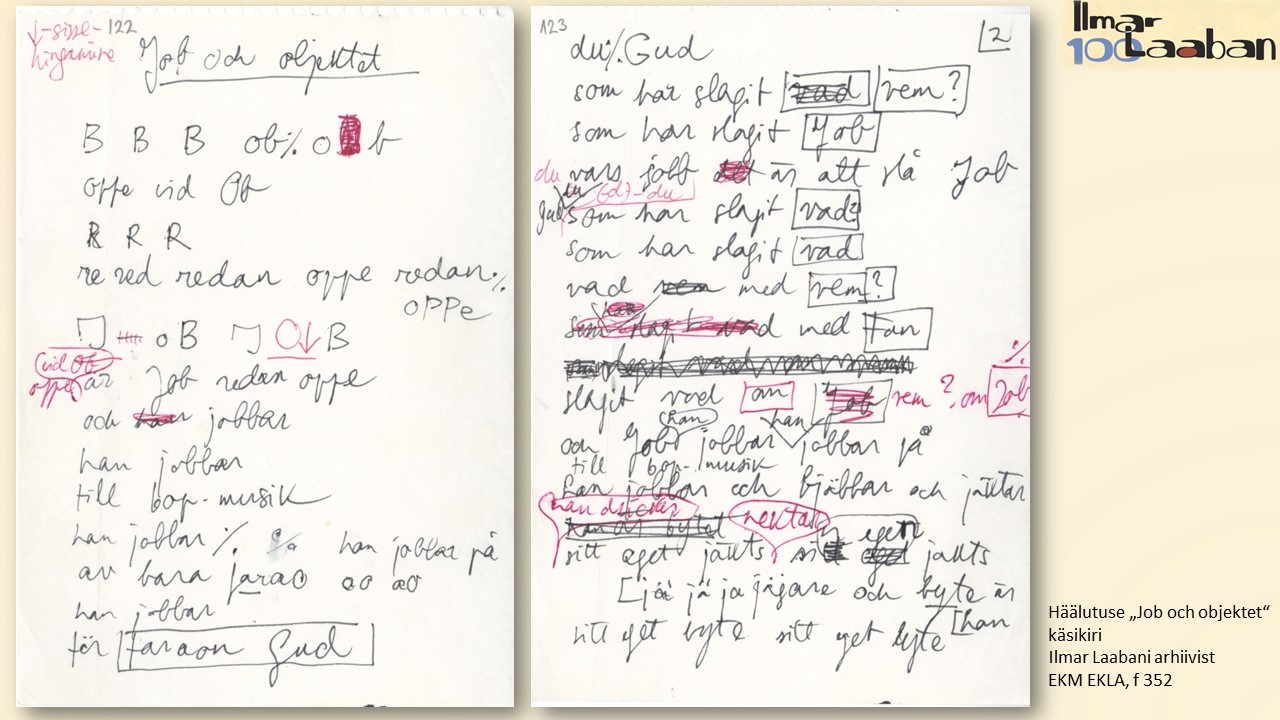 ↓-sisse-
hingamine
122
Job och objektet
B B B ob% o b
oppe vid Ob
R R R
re red redan oppe redan %
oppe
J oB J O↓B
vid Ob
oppe
är Job redan oppe
och jobbar
han jobbar
till bop-musik
han jobbar % han jobbar på
av bara farao ao ao
han jobbar
för faraon Gud
123
2
du % Gud
som har slagit vad vem?
som har slagit Job
du vars jobb det är att slå Job
du (d)-du
Gud som har slagit vad?
som har slagit vad
vad vem med vem?
vad med Fan
slagit vad om Job vem?, om Job %
och Job (han) jobbar han jobbar på
till bop-musik
han jobbar och bjäbbar och jäktar
han dricker nektar
han är bytet
sitt eget jakts sin egen jakts
[jä jä ja jägare och byte är
sitt eget byte sitt eget byte [han
Ilmar
100 Laaban
Häälutuse „Job och objektet“
käsikiri
Ilmar Laabani arhiivist
EKM EKLA, f 352